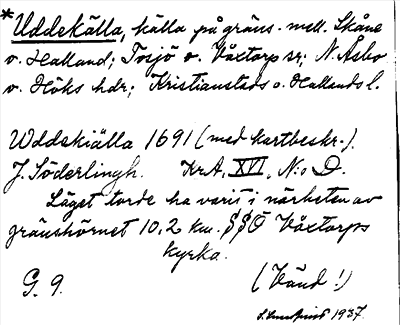 *Uddekälla, källa på gräns. mell. Skåne
o. Halland; Tosjö o. Våxtorp sr; N. Åsbo
o. Höks hdr; Kristianstads o. Hallands l.
Uddekiälla 1691 (med kartbeskr.).
J. Söderlingh. KrA, XVI, N:o D.
Läget torde ha varit i närheten av
gränshörnet 10,2 km. SSÖ Våxtorps
kyrka.
G. 9. (Vänd!)
1937.